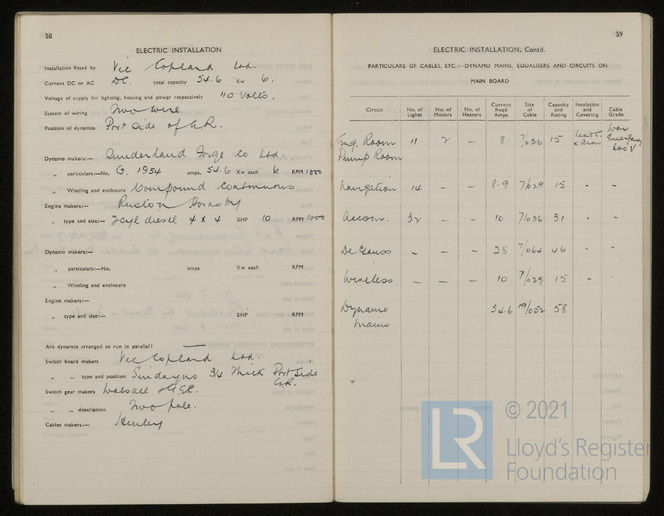 58
ELECTRIC INSTALLATION
Installation fitted by Vic Copland Ltd.
Current DC or AC DC. total capacity 54.6 Kw 6.
Voltage of supply for lighting, heating and power respectively 110 Volts.
System of wiring Two wire
Position of dynamos Port Side of E.R.
Dynamo makers:— Sunderland Forge Co Ltd.
„ particulars:—No. G. 1954 amps. 54.6 Kw each 6 RPM 1000
„ Winding and enclosure Compound Continuous
Engine makers:— Ruston Hornsby
„ type and size:— 2cyl diesel 4 x 4 BHP 10 RPM 1000
Dynamo makers:—
„ particulars:—No. amps Kw each RPM
„ Winding and enclosure
Engine makers:—
„ type and size:— BHP RPM
Are dynamos arranged to run in parallel?
Switch board makers Vic Copland Ltd.
„ „ type and position Sindanyo 3/4 thick Port Side
E.R.
Switch gear makers Walsall & G.E.C.
„ „ description Two pole.
Cables makers:— Henley
59
ELECTRIC INSTALLATION, Contd.
PARTICULARS OF CABLES, ETC.:—DYNAMO MAINS, EQUALISERS AND CIRCUITS ON
MAIN BOARD
Circuit No. of Lights No. of Motors No. of Heaters Current Reqd Amps Size of Cable Capacity and Rating Insulation and Covering Cable Grade
Eng. Room 11 2 - 8 7/036 15 War Emergency 600 V
Pump Room
Navigation 14 - - 8.9 7/029 15 - -
Accom. 32 - - 10 7/036 31 - -
De Gauss - - - 28 7/064 46 - -
Wireless - - - 10 7/029 15 - -
Dynamo 54.6 19/052 58
Mains
LR
© 2021
Lloyd's Register
Foundation